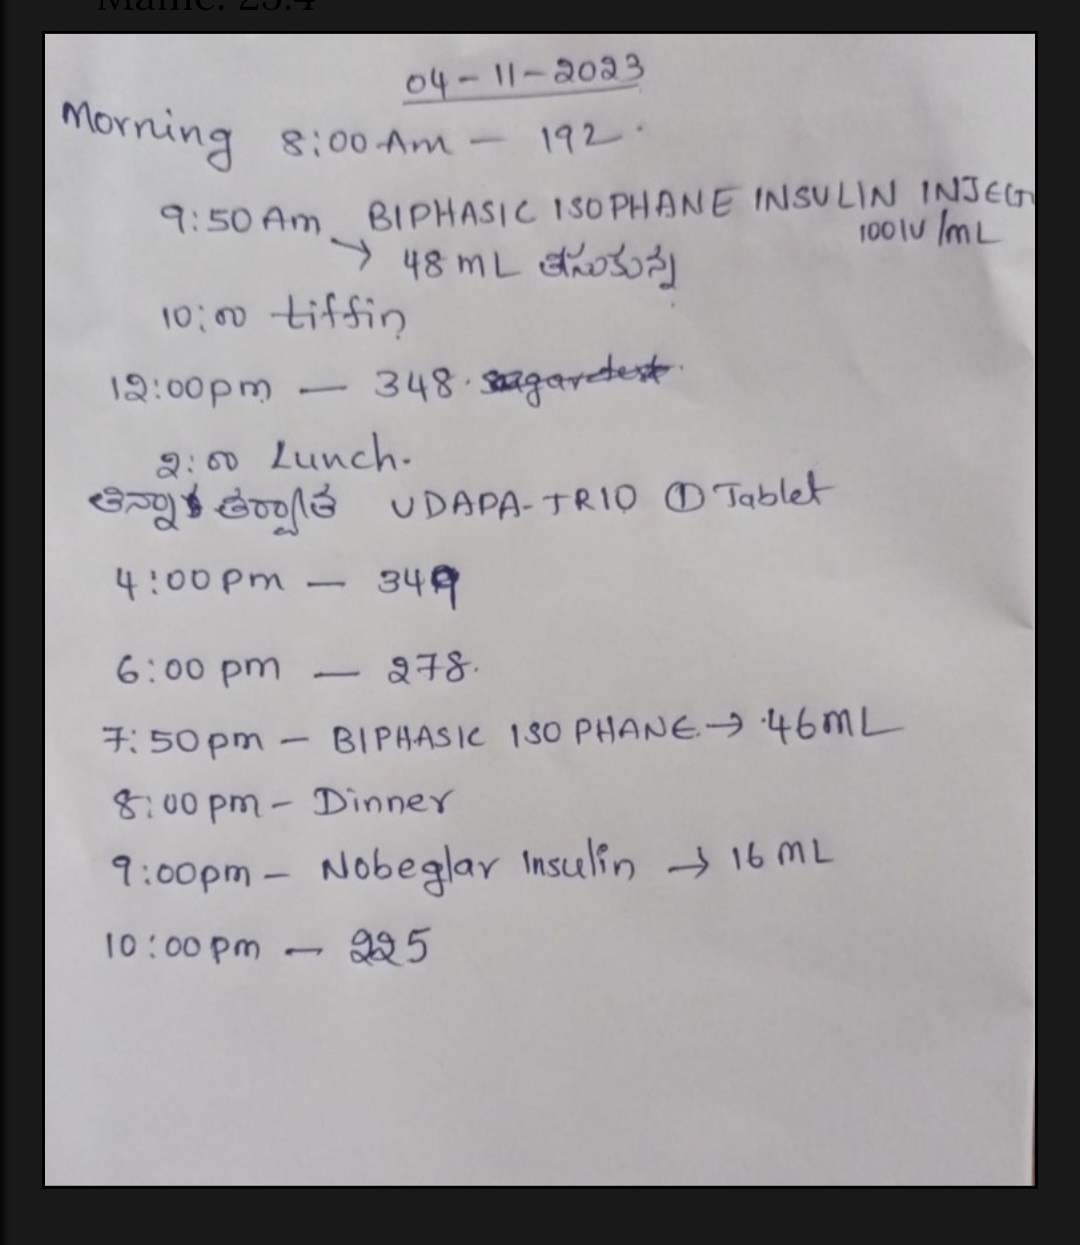 04-11-2023
Morning 8:00 Am - 192.
9:50 Am BIPHASIC ISOPHANE INSULIN INJECT
100 IU/mL
→ 48 mL తీసుకున్న
10:00 tiffin
12:00pm - 348.
2:00 Lunch.
తిన్నాక తర్వాత UDAPA-TRIO ① Tablet
4:00 pm - 349
6:00 pm - 278.
7:50pm - BIPHASIC ISO PHANE → 46 mL
8:00 pm - Dinner
9:00pm - Nobeglar Insulin → 16 mL
10:00 pm - 225